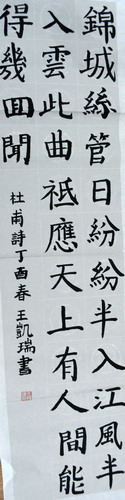 錦城絲管日紛紛半入江風半
入雲此曲祗應天上有人間能
得幾回聞
杜甫詩丁酉春王凱瑞書